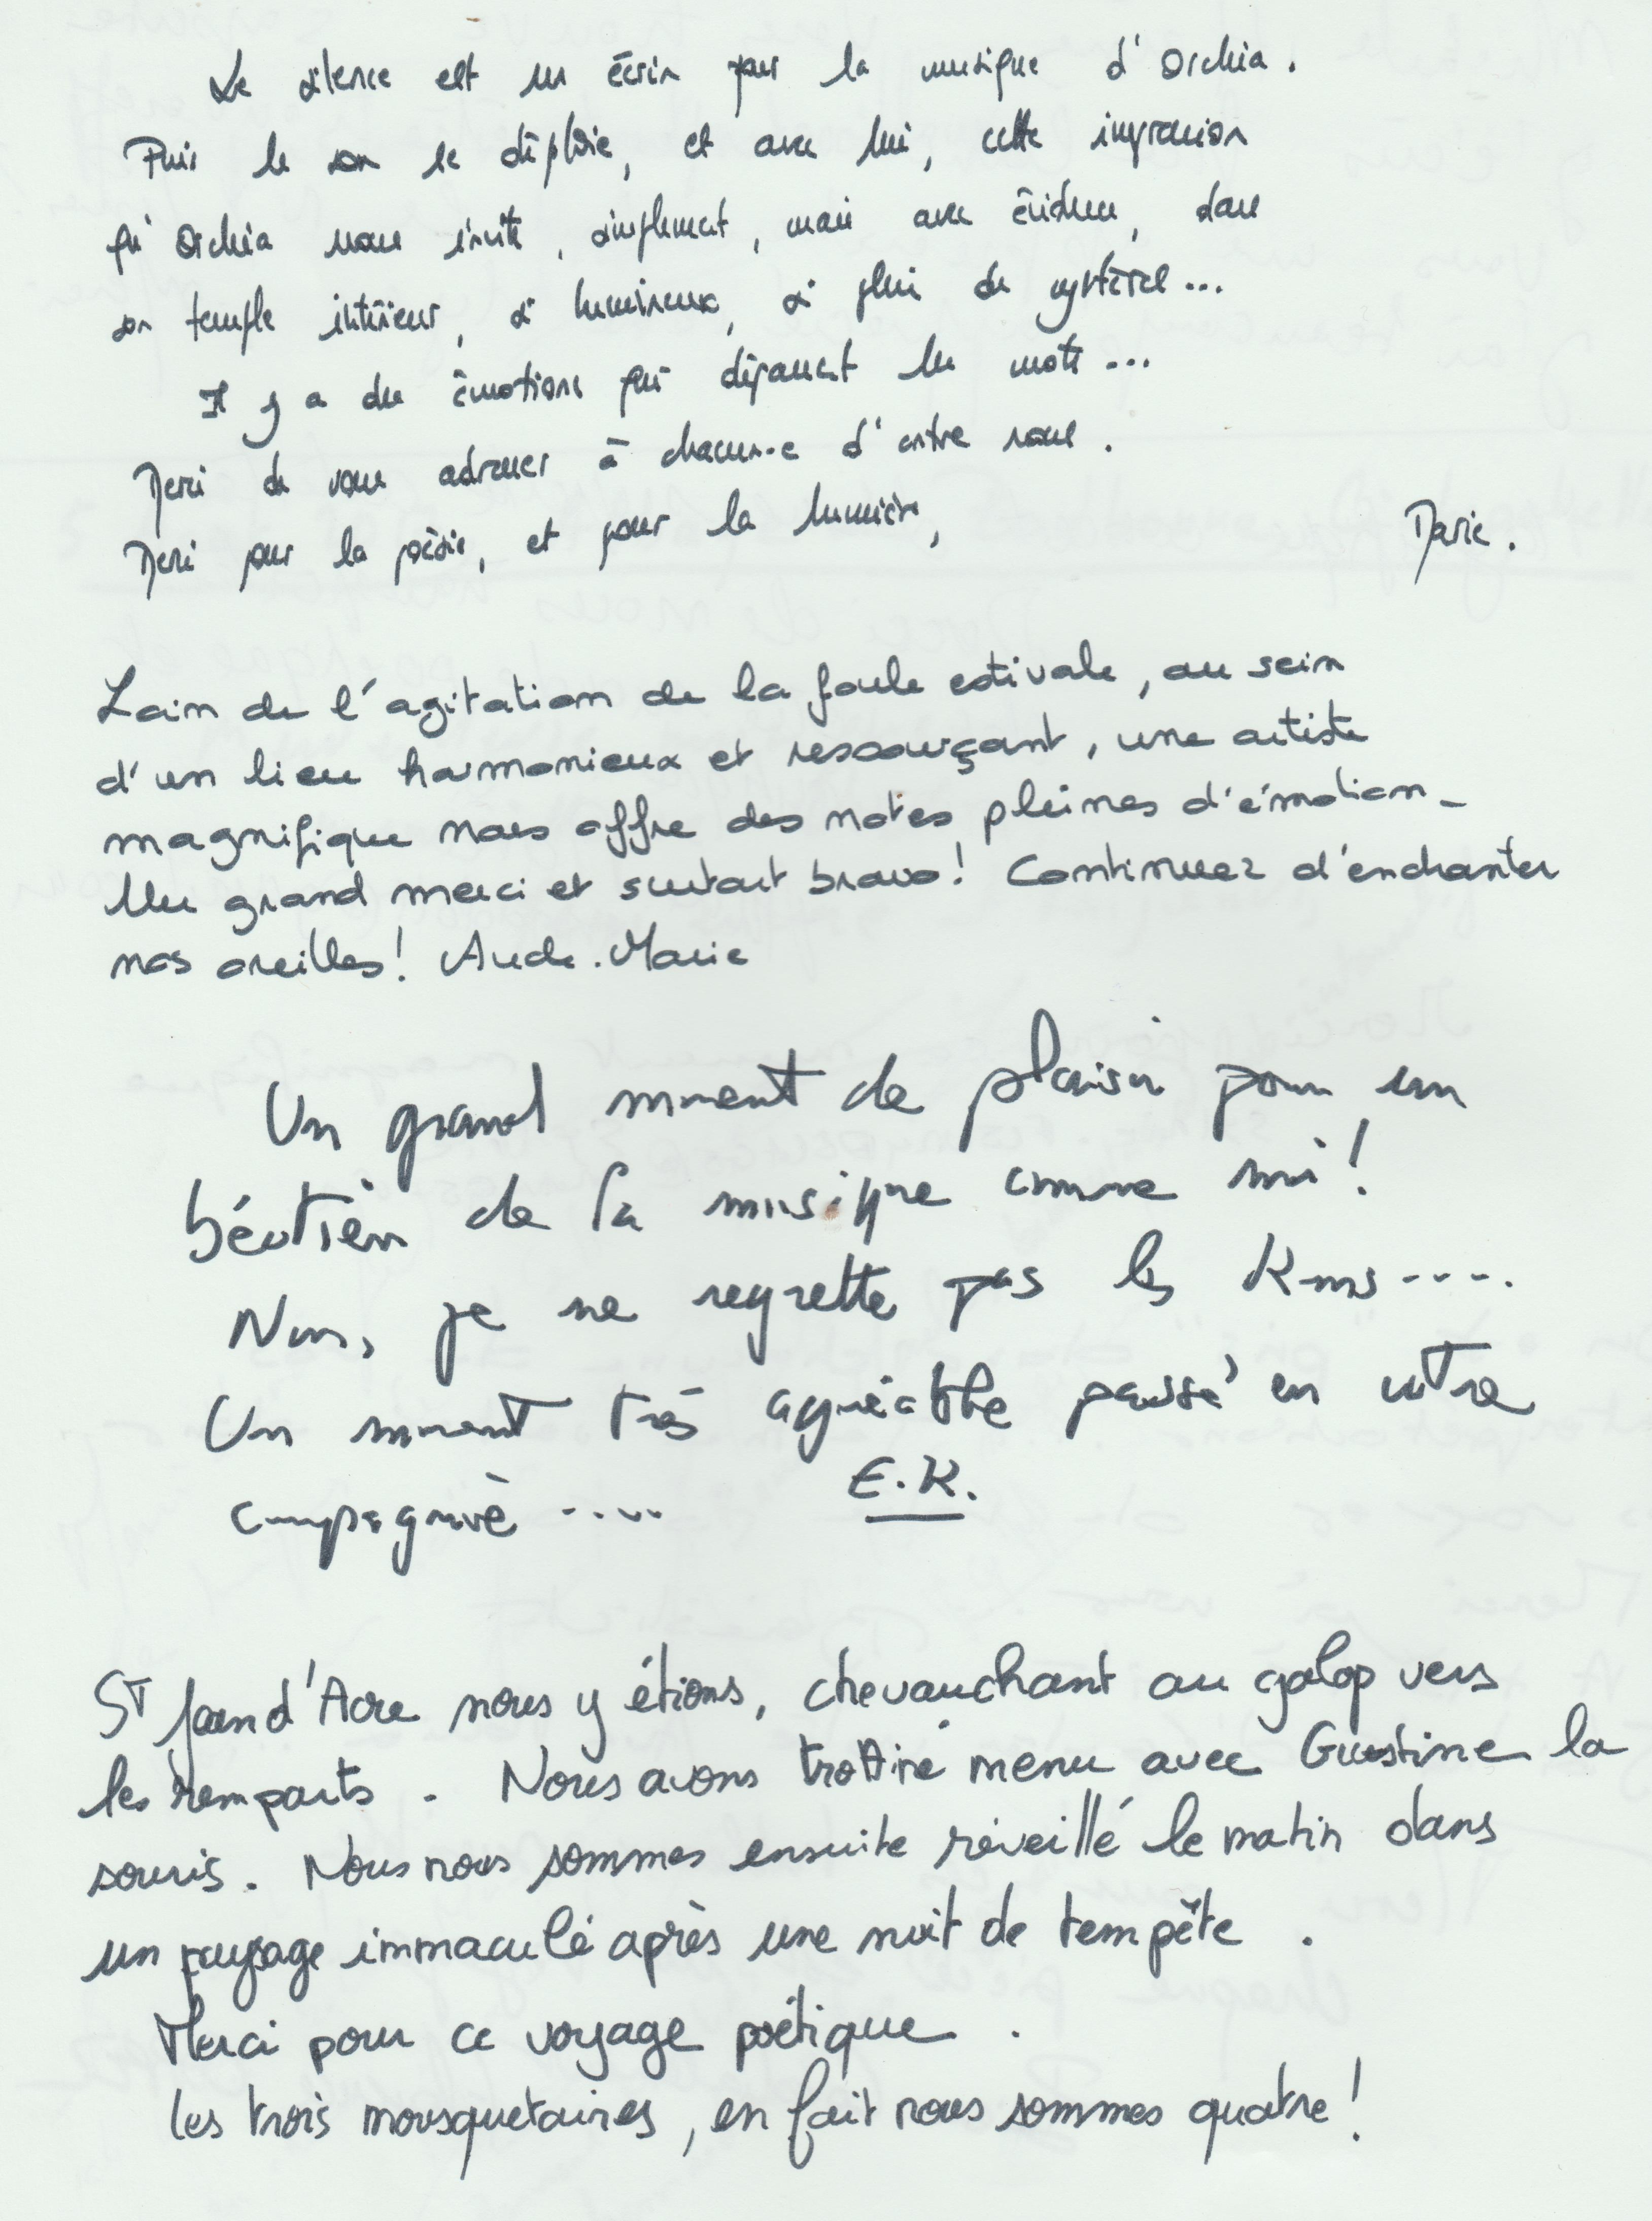 Le silence est un écrin pour la musique d'Orchia.
Puis le son se déploie, et avec lui, cette impression
qu'Orchia nous invite, simplement, mais avec évidence, dans
son temple intérieur, si lumineux, si plein de mystères...
Il y a des émotions qui dépassent les mots...
Merci de vous adresser à chacun.e d'entre nous.
Merci pour la poésie, et pour la lumière,
Marie.
Loin de l'agitation de la foule estivale, au sein
d'un lieu harmonieux et ressourçant, une artiste
magnifique nous offre des notes pleines d'émotion -
Un grand merci et surtout bravo! Continuez d'enchanter
nos oreilles! Aude-Marie
Un grand moment de plaisir pour un
béotien de la musique comme moi!
Non, je ne regrette pas les Kms.....
Un moment très agréable passé en votre
compagnie.....
E.K.
ST Jean d'Acre nous y étions, chevauchant au galop vers
les remparts. Nous avons trottiné menu avec Gustine la
souris. Nous nous sommes ensuite réveillé le matin dans
un paysage immaculé après une nuit de tempête.
Merci pour ce voyage poétique.
les trois mousquetaires, en fait nous sommes quatre!